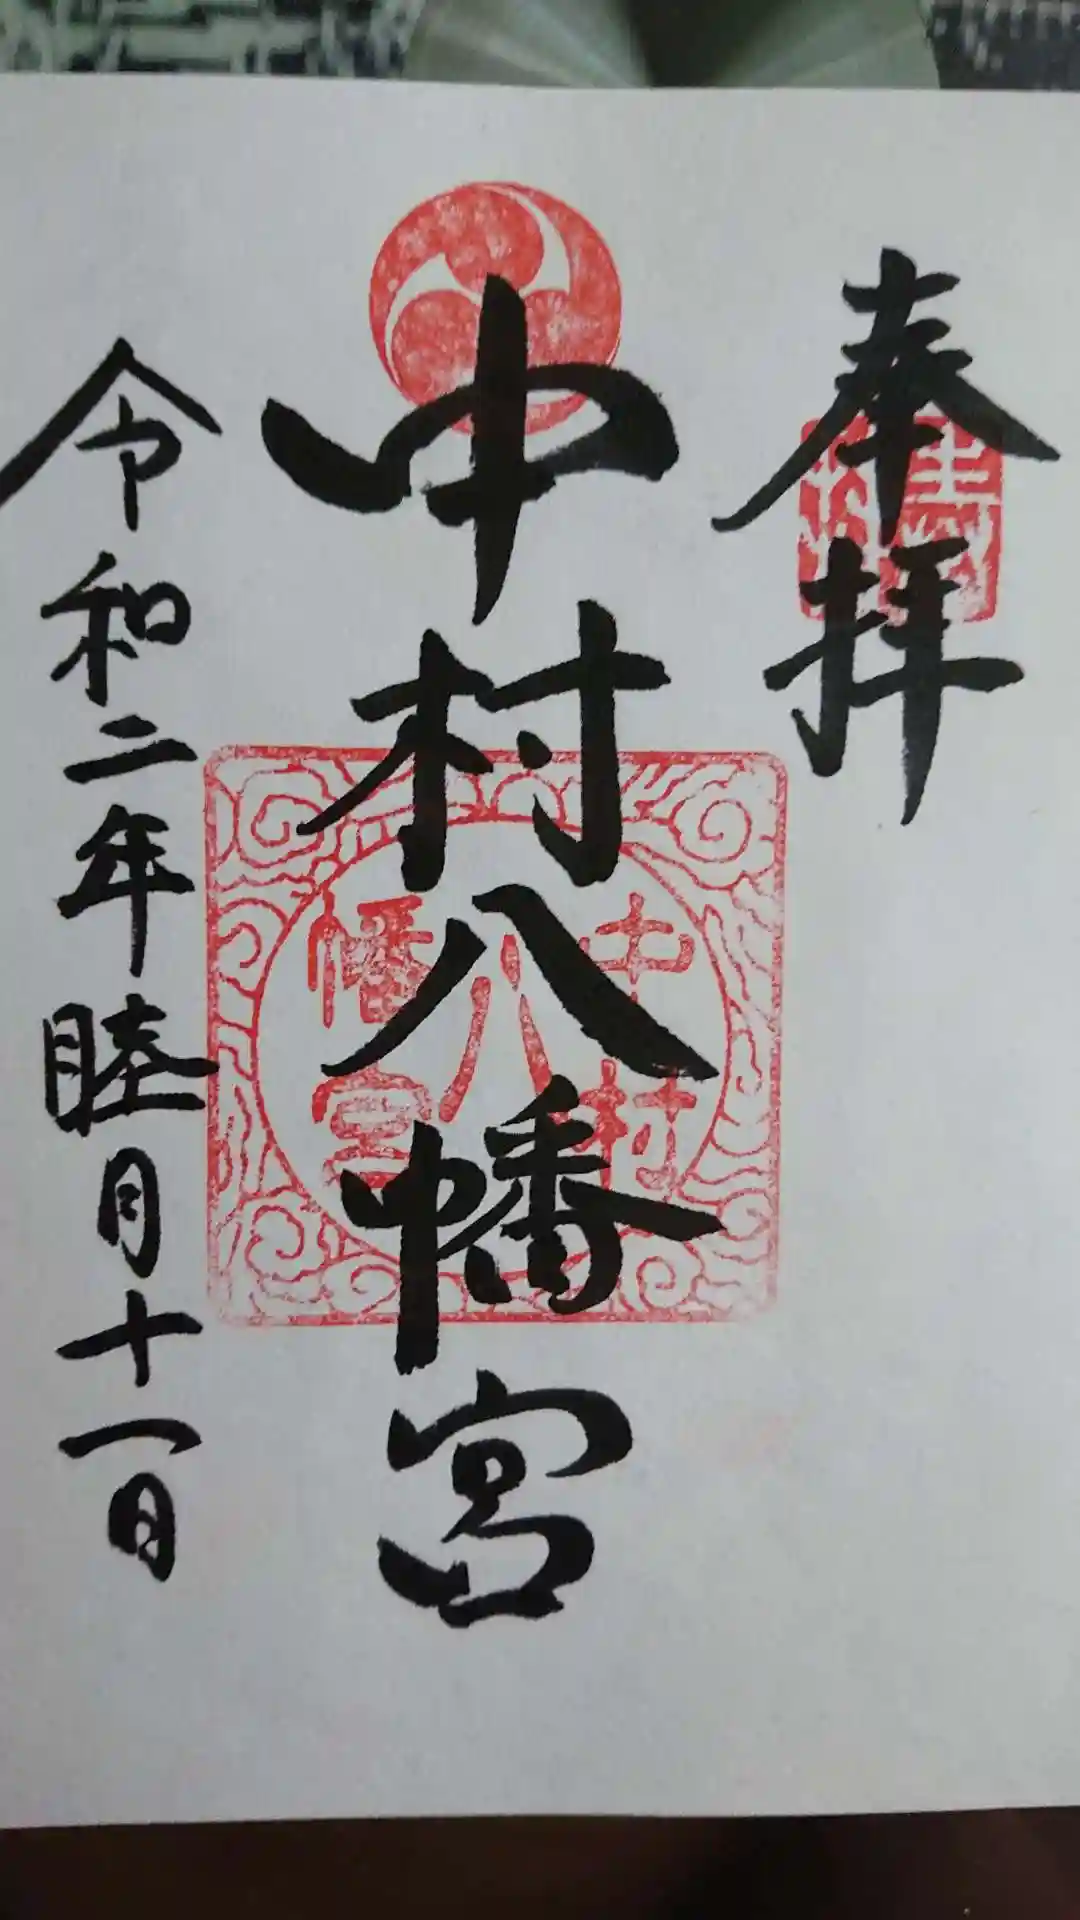 奉拝
中村八幡宮
中村八幡宮
令和二年睦月十一日